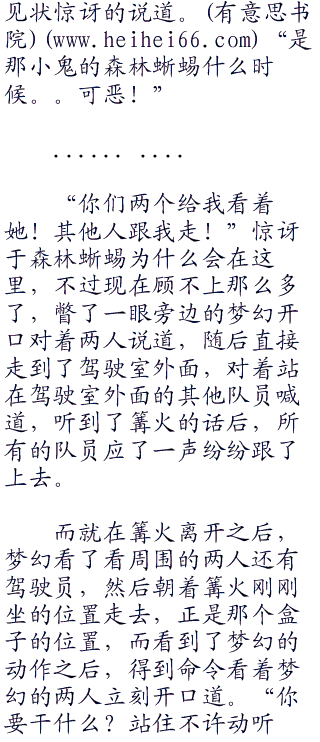 见状惊讶的说道。(有意思书
院)(www.heihei66.com) “是
那小鬼的森林蜥蜴什么时
候。。可恶！”
...... ....
“你们两个给我看着
她！其他人跟我走！”惊讶
于森林蜥蜴为什么会在这
里，不过现在顾不上那么多
了，瞥了一眼旁边的梦幻开
口对着两人说道，随后直接
走到了驾驶室外面，对着站
在驾驶室外面的其他队员喊
道，听到了篝火的话后，所
有的队员应了一声纷纷跟了
上去。
而就在篝火离开之后，
梦幻看了看周围的两人还有
驾驶员，然后朝着篝火刚刚
坐的位置走去，正是那个盒
子的位置，而看到了梦幻的
动作之后，得到命令看着梦
幻的两人立刻开口道。“你
要干什么？站住不许动听